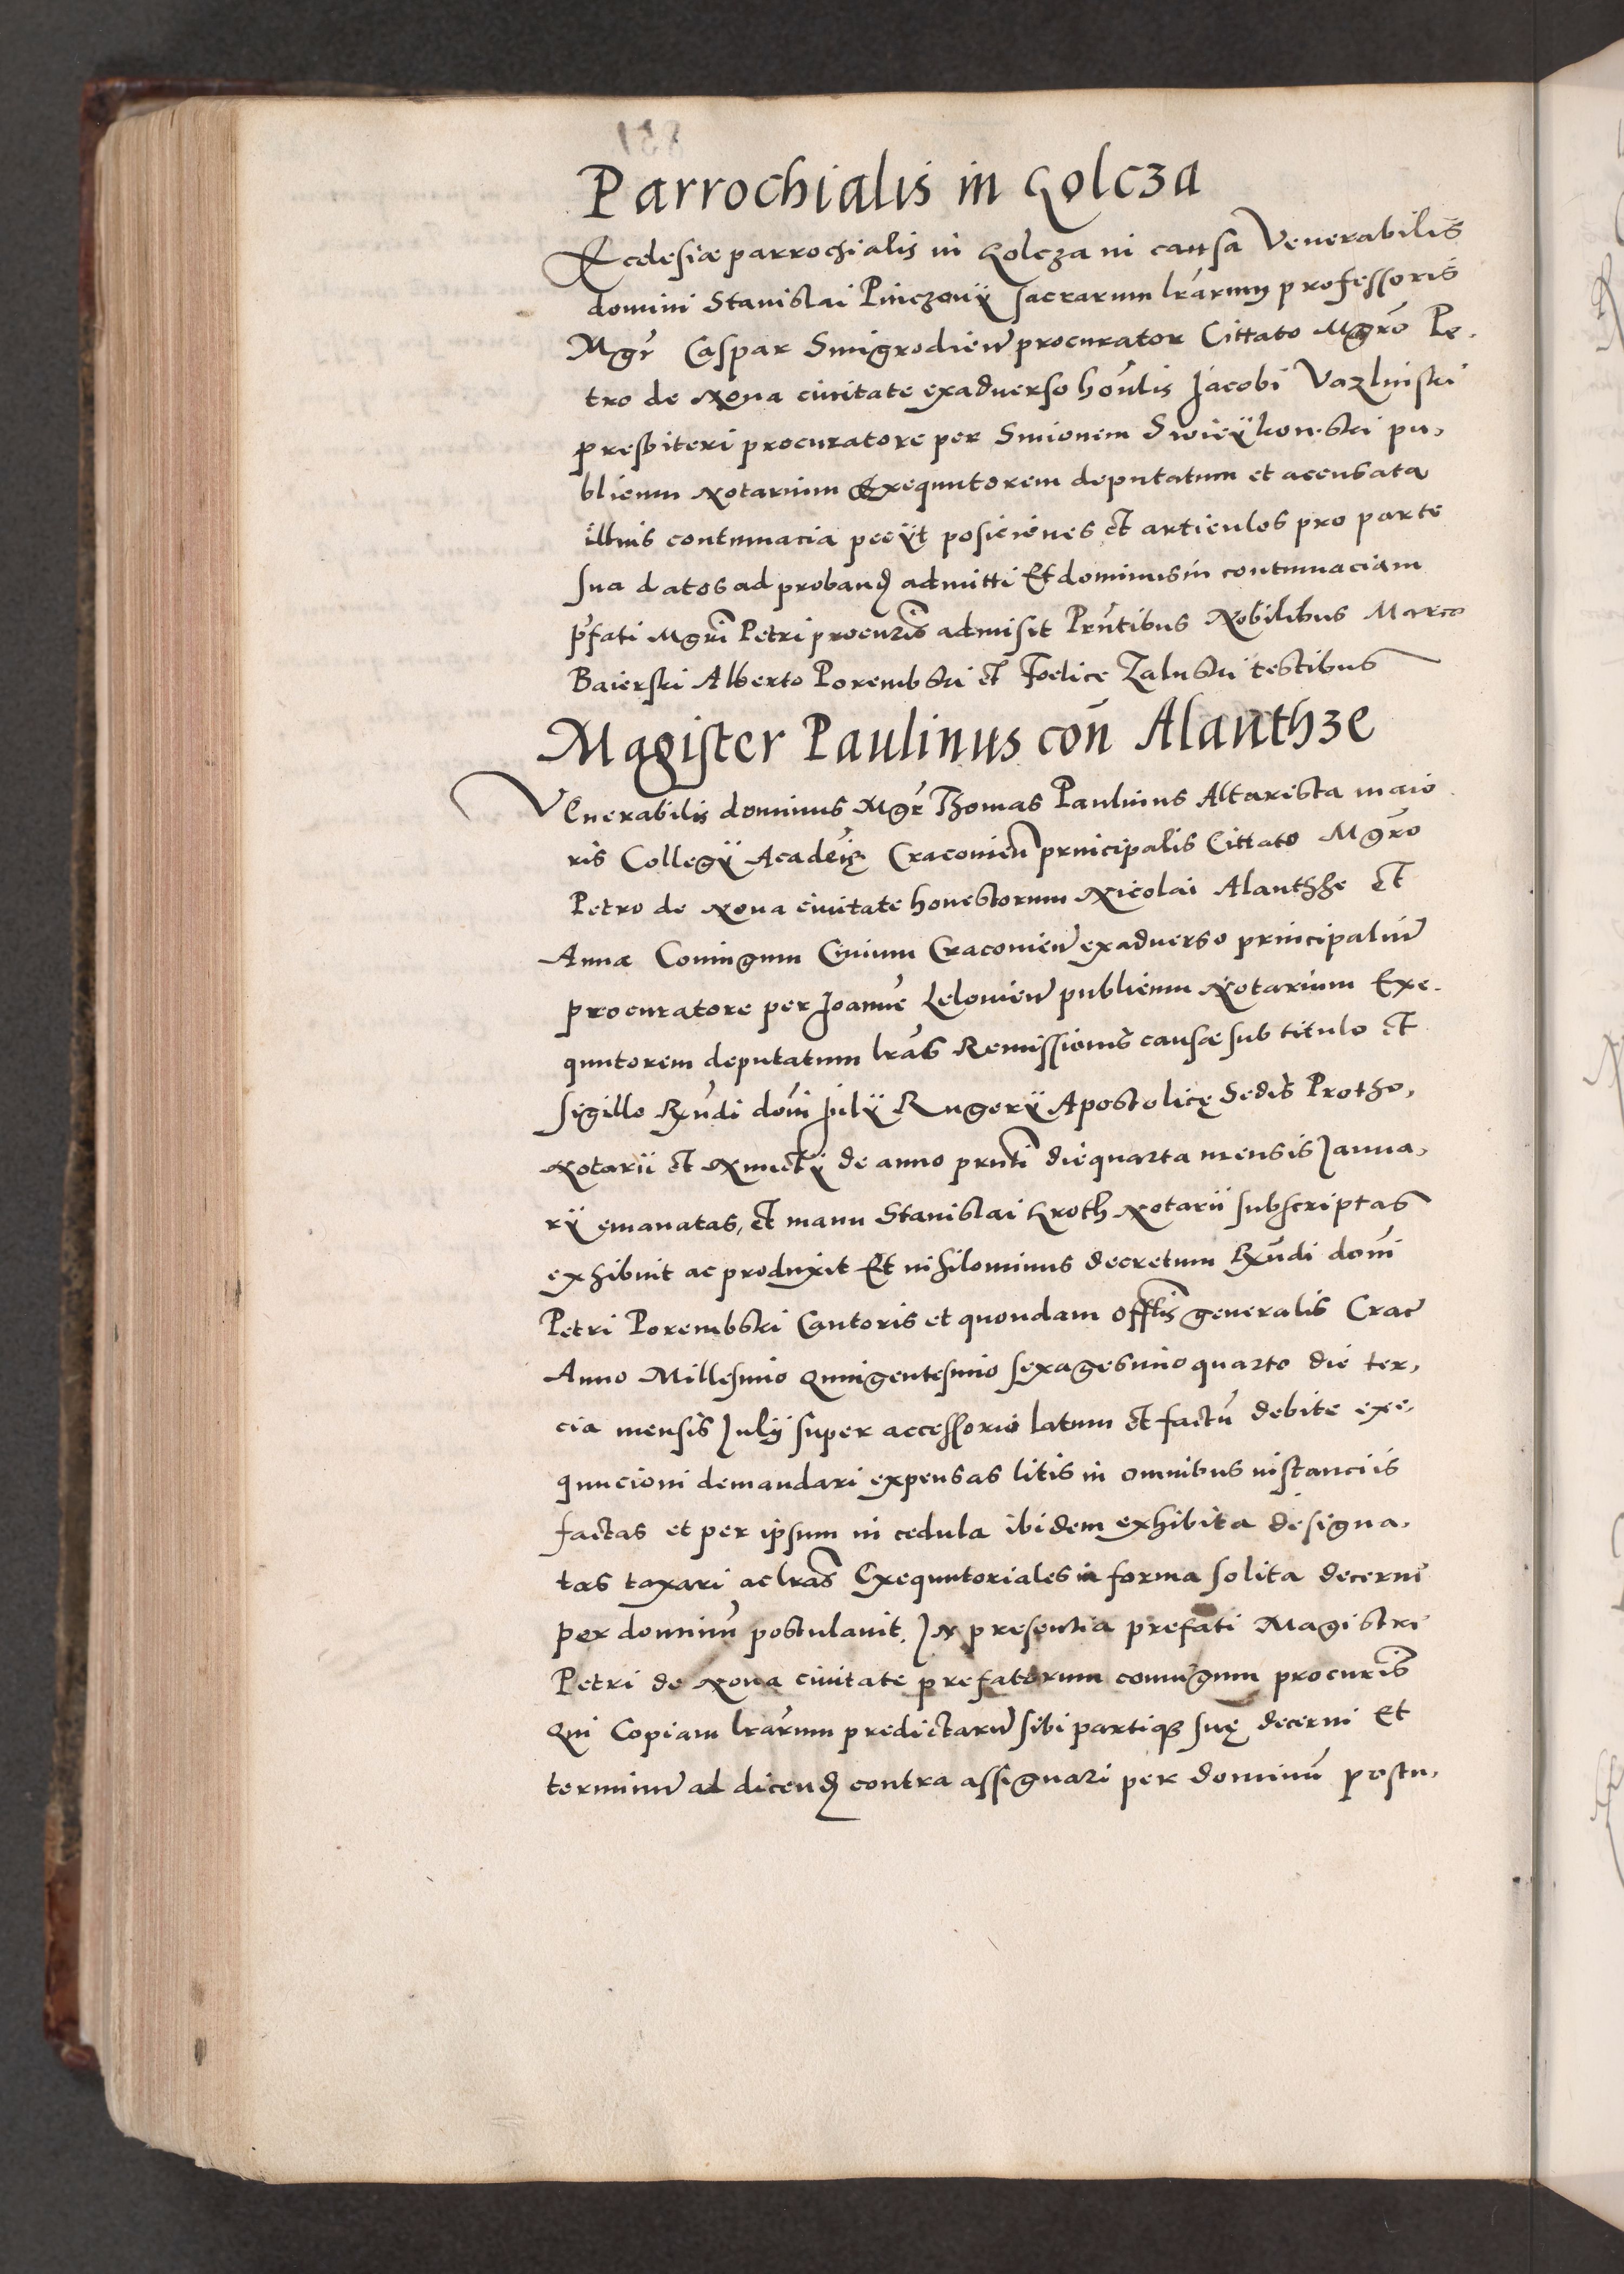 Parrochialis in Golcza
Ecclesiæ parrochialis in Golcza in causa Venerabilis
domini Stanislai Pinczouÿ sacrarum lrarum professoris
Mgr Caspar Smigrodien procurator Cittato Mgro Pe-
tro de Noua ciuitate exaduerso honlis Jacobi Vazlinski
presbiteri procuratore per Simonem Swieÿkowski pu-
blicum Notarium Exequutorem deputatum et accusata
illius contumacia peeÿt posiciones et articulos pro parte
sua datos ad proband admitti Et dominus in contumaciam
pfati Mgri Petri procuris admisit Prntibus Nobilibus Marco
Baierski Alberto Porembski et Foelice Zaluski testibus
Magister Paulinus con Alanthze
Venerabilis dominus Mgr Thomas Paulinus Altarista maio
ris Collegÿ Academię Cracouien principalis Cittato Mgro
Petro de Noua ciuitate honestorum Nicolai Alanthze et
Annæ Coniugum Ciuium Cracouien exaduerso principaliu
procuratore per Joanne Lelouien publicum Notarium Exe-
quutorem deputatum lras Remissionis causæ sub titulo et
sigillo Rndi domi Julÿ Rugerÿ Apostolicę Sedis Protho-
Notarii et Nunctÿ de anno prnti die quarta mensis Janua-
rÿ emanatas, et manu Stanislai Groth Notarii subscriptas
exhibuit ac produxit Et nihilominus decretum Rndi domi
Petri Porembski Cantoris et quondam offlis generalis Crac
Anno Millesimo quingentesimo sexagesimo quarto die ter-
cia mensis Julÿ super accessorio latum et factu debite exe-
quucioni demandari expensas litis in omnibus instanciis
factas et per ipsum in cedula ibidem exhibita designa-
tas taxari ac lras Exequutoriales in forma solita decerni
per dominu postulauit. In presentia prefati Magistri
Petri de Noua ciuitate prefatorum coniugum procuris
Qui Copiam lrarum predictaru sibi partiqz suę decerni Et
terminu ad dicend contra assignari per dominu postu-